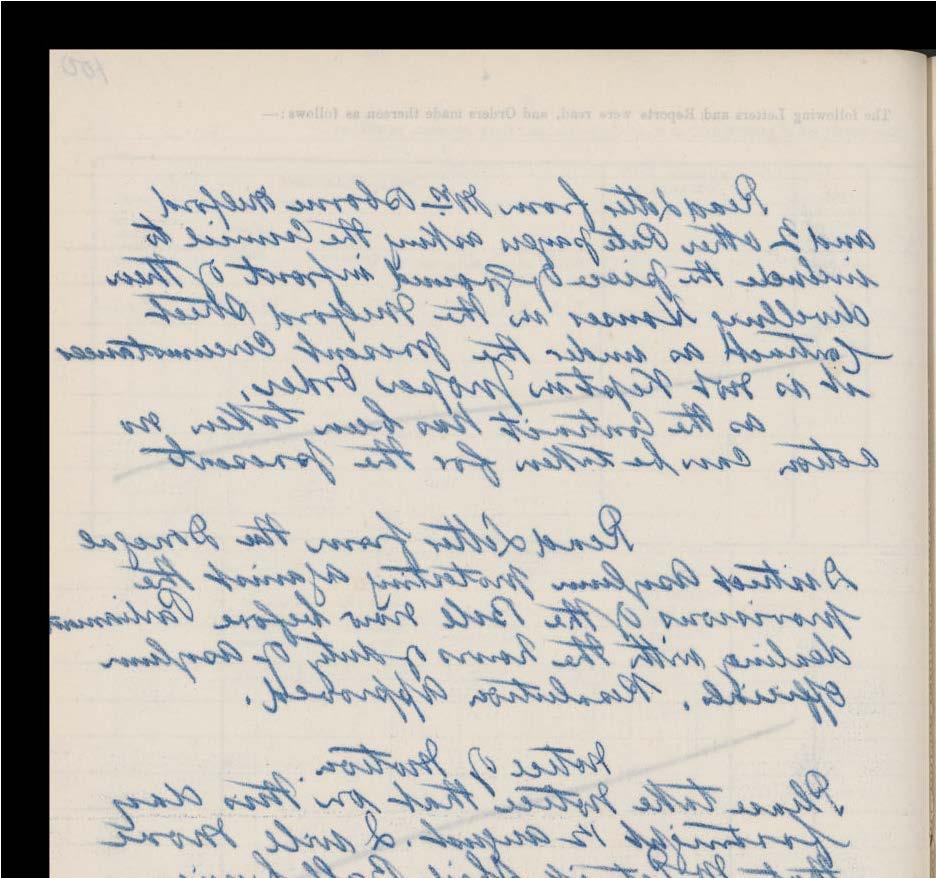 100
The following Letters and Reports were read, and Orders made thereon as follows:—
Read Letter from Mr Osborne Milford
and 2 other Rate payers asking the Council to
include the piece of ground infront of their
dwelling houses in the Milford Street
Contract as under the present Circumstances
it is not kept in proper order.
as the Contract has been taken no
action can be taken for the present
Read Letter from the Donegal
District Asylum protesting against the
provisions of the Bill now before Parliament
dealing with the hours of duty of Asylum
Officials. Resolution approved.
Notice of Motion.
Please take notice that on this day
fortnight 12 august. I will move